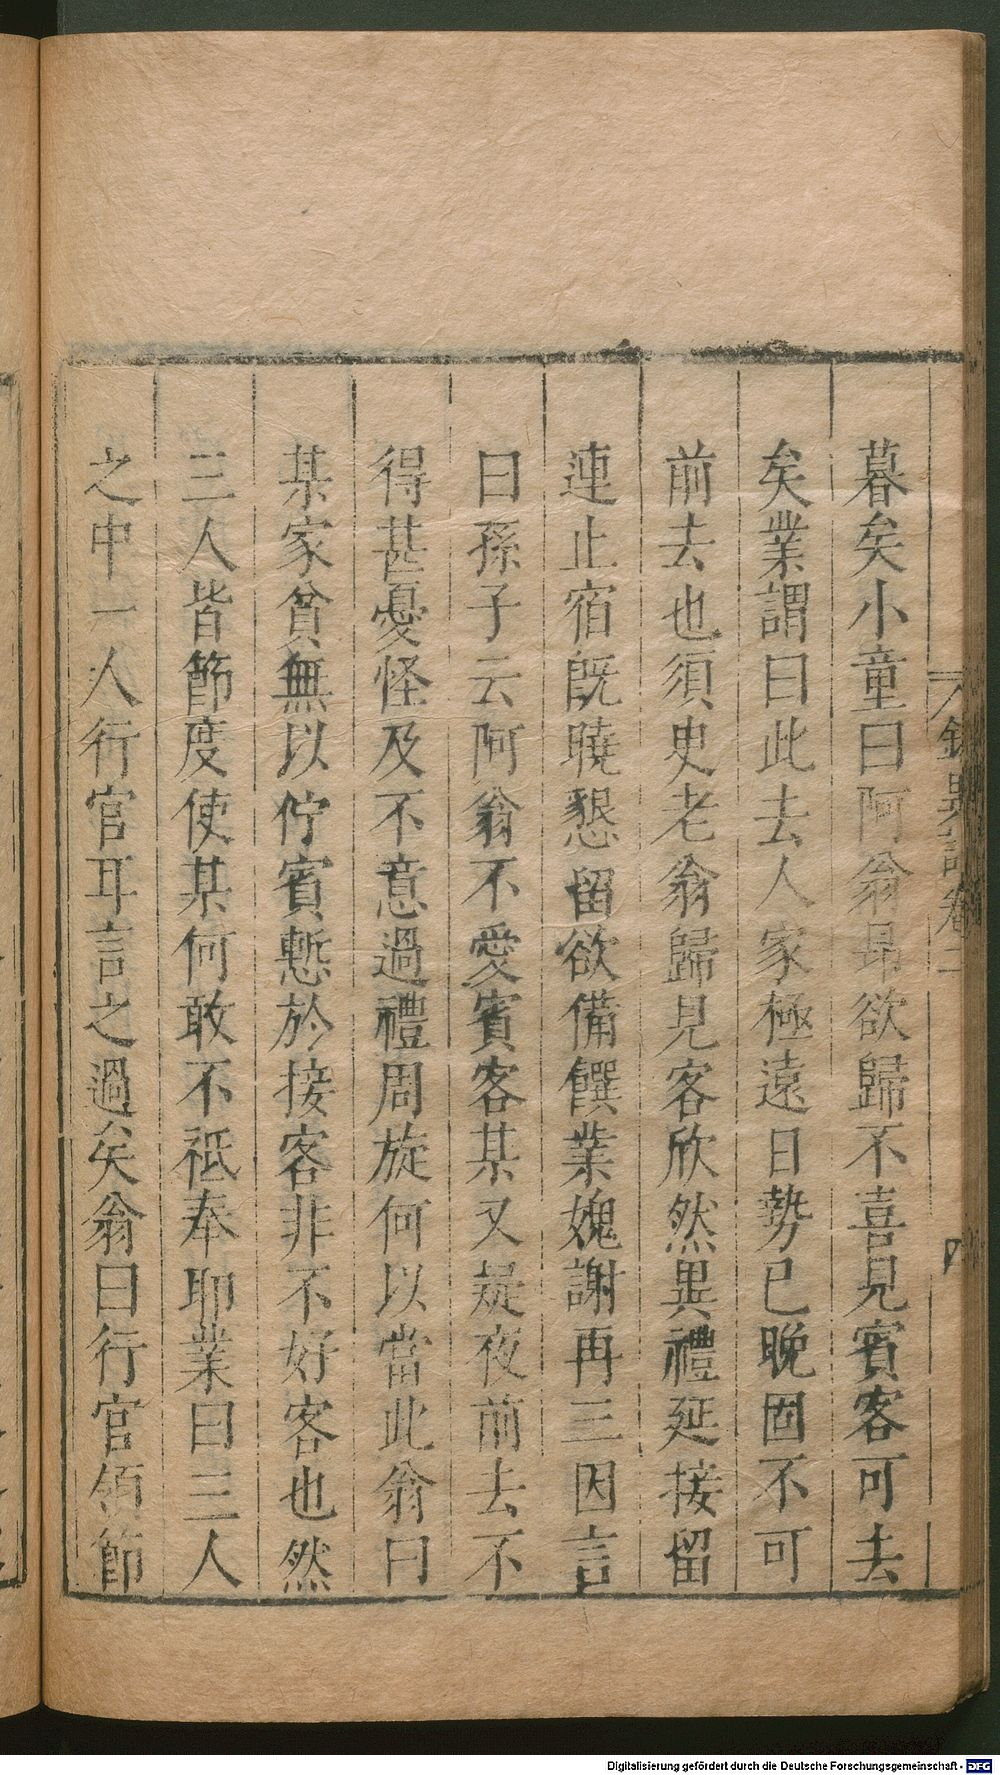 暮矣小童曰阿翁即欲歸不喜見賓客可去
矣業謂曰此去人家極遠日勢已晚固不可
前去也須史老翁歸見客欣然異禮延接留
連止宿既曉懇留欲備饌業媿謝再三因言
曰孫子云阿翁不愛賓客某又疑夜前去不
得甚憂怪及不意過禮周旋何以當此翁曰
某家貧無以佇賓慙於接客非不好客也然
三人皆節度使某何敢不祗奉耶業曰三人
之中一人行官耳言之過矣翁曰行官領節
Digitalisierung gefördert durch die Deutsche Forschungsgemeinschaft - DFG